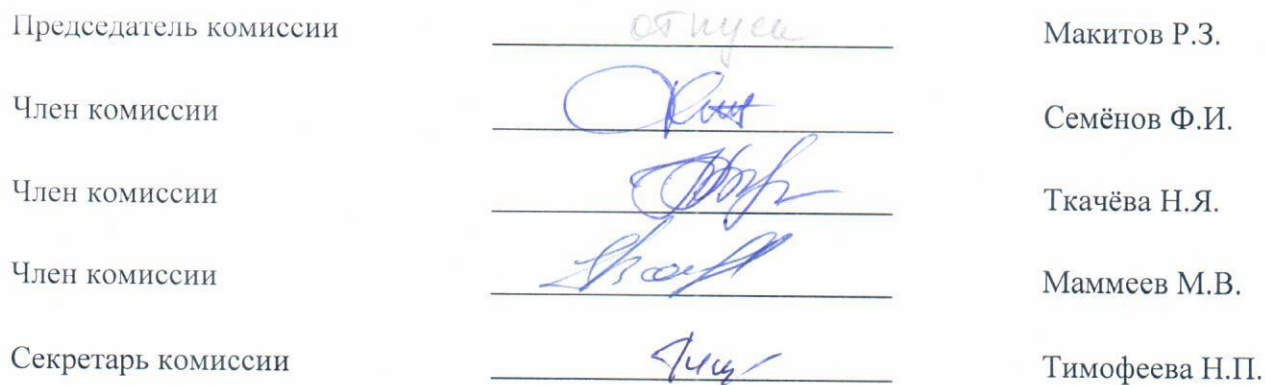 Председатель комиссии отпуск Макитов Р.З.
Член комиссии Семёнов Ф.И.
Член комиссии Ткачёва Н.Я.
Член комиссии Маммеев М.В.
Секретарь комиссии Тимофеева Н.П.